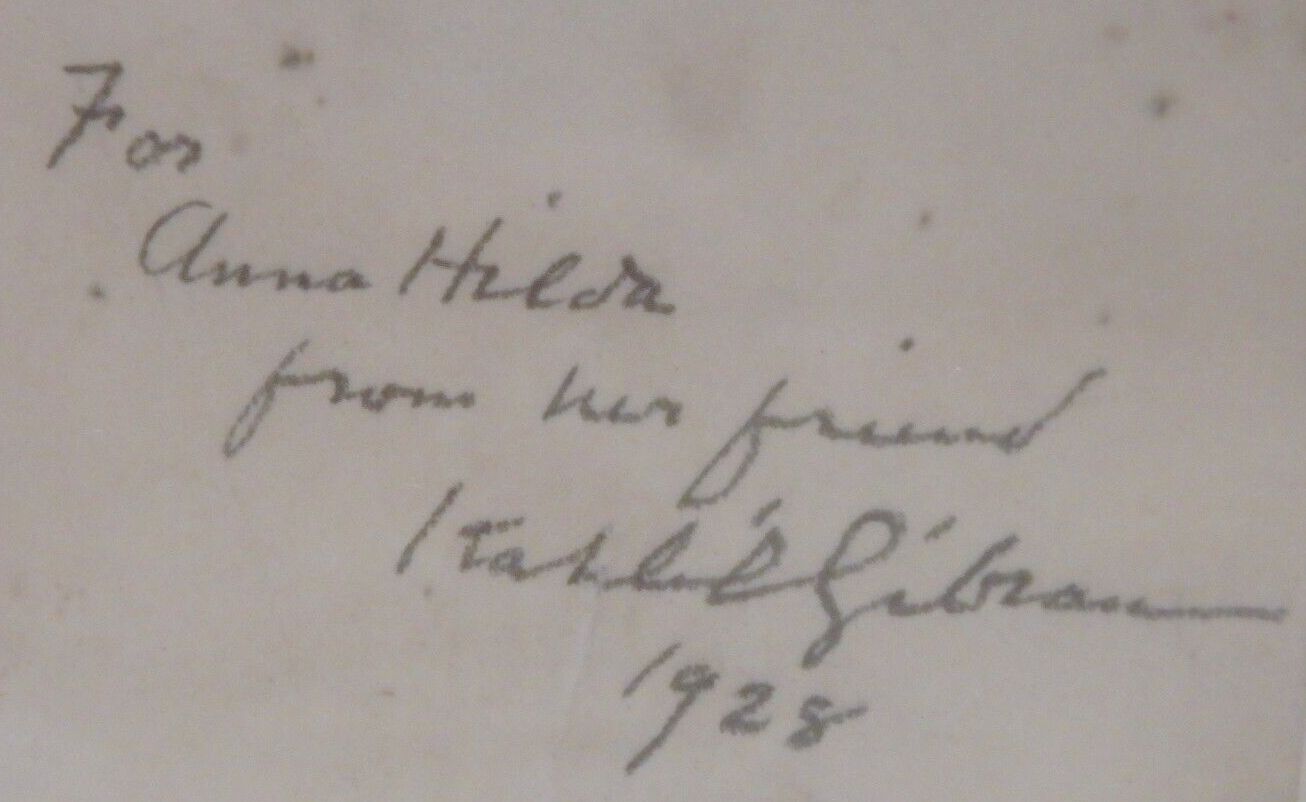 For
Anna Hilda
from her friend
Kahlil Gibran
1928